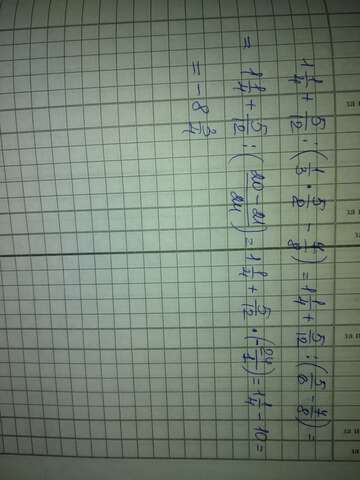 1 1/4 + 5/12 : (1/3 · 5/2 - 7/8) = 1 1/4 + 5/12 : (5/6 - 7/8) =
= 1 1/4 + 5/12 : (20-21/24) = 1 1/4 + 5/12 · (-24/1) = 1 1/4 - 10 =
= -8 3/4